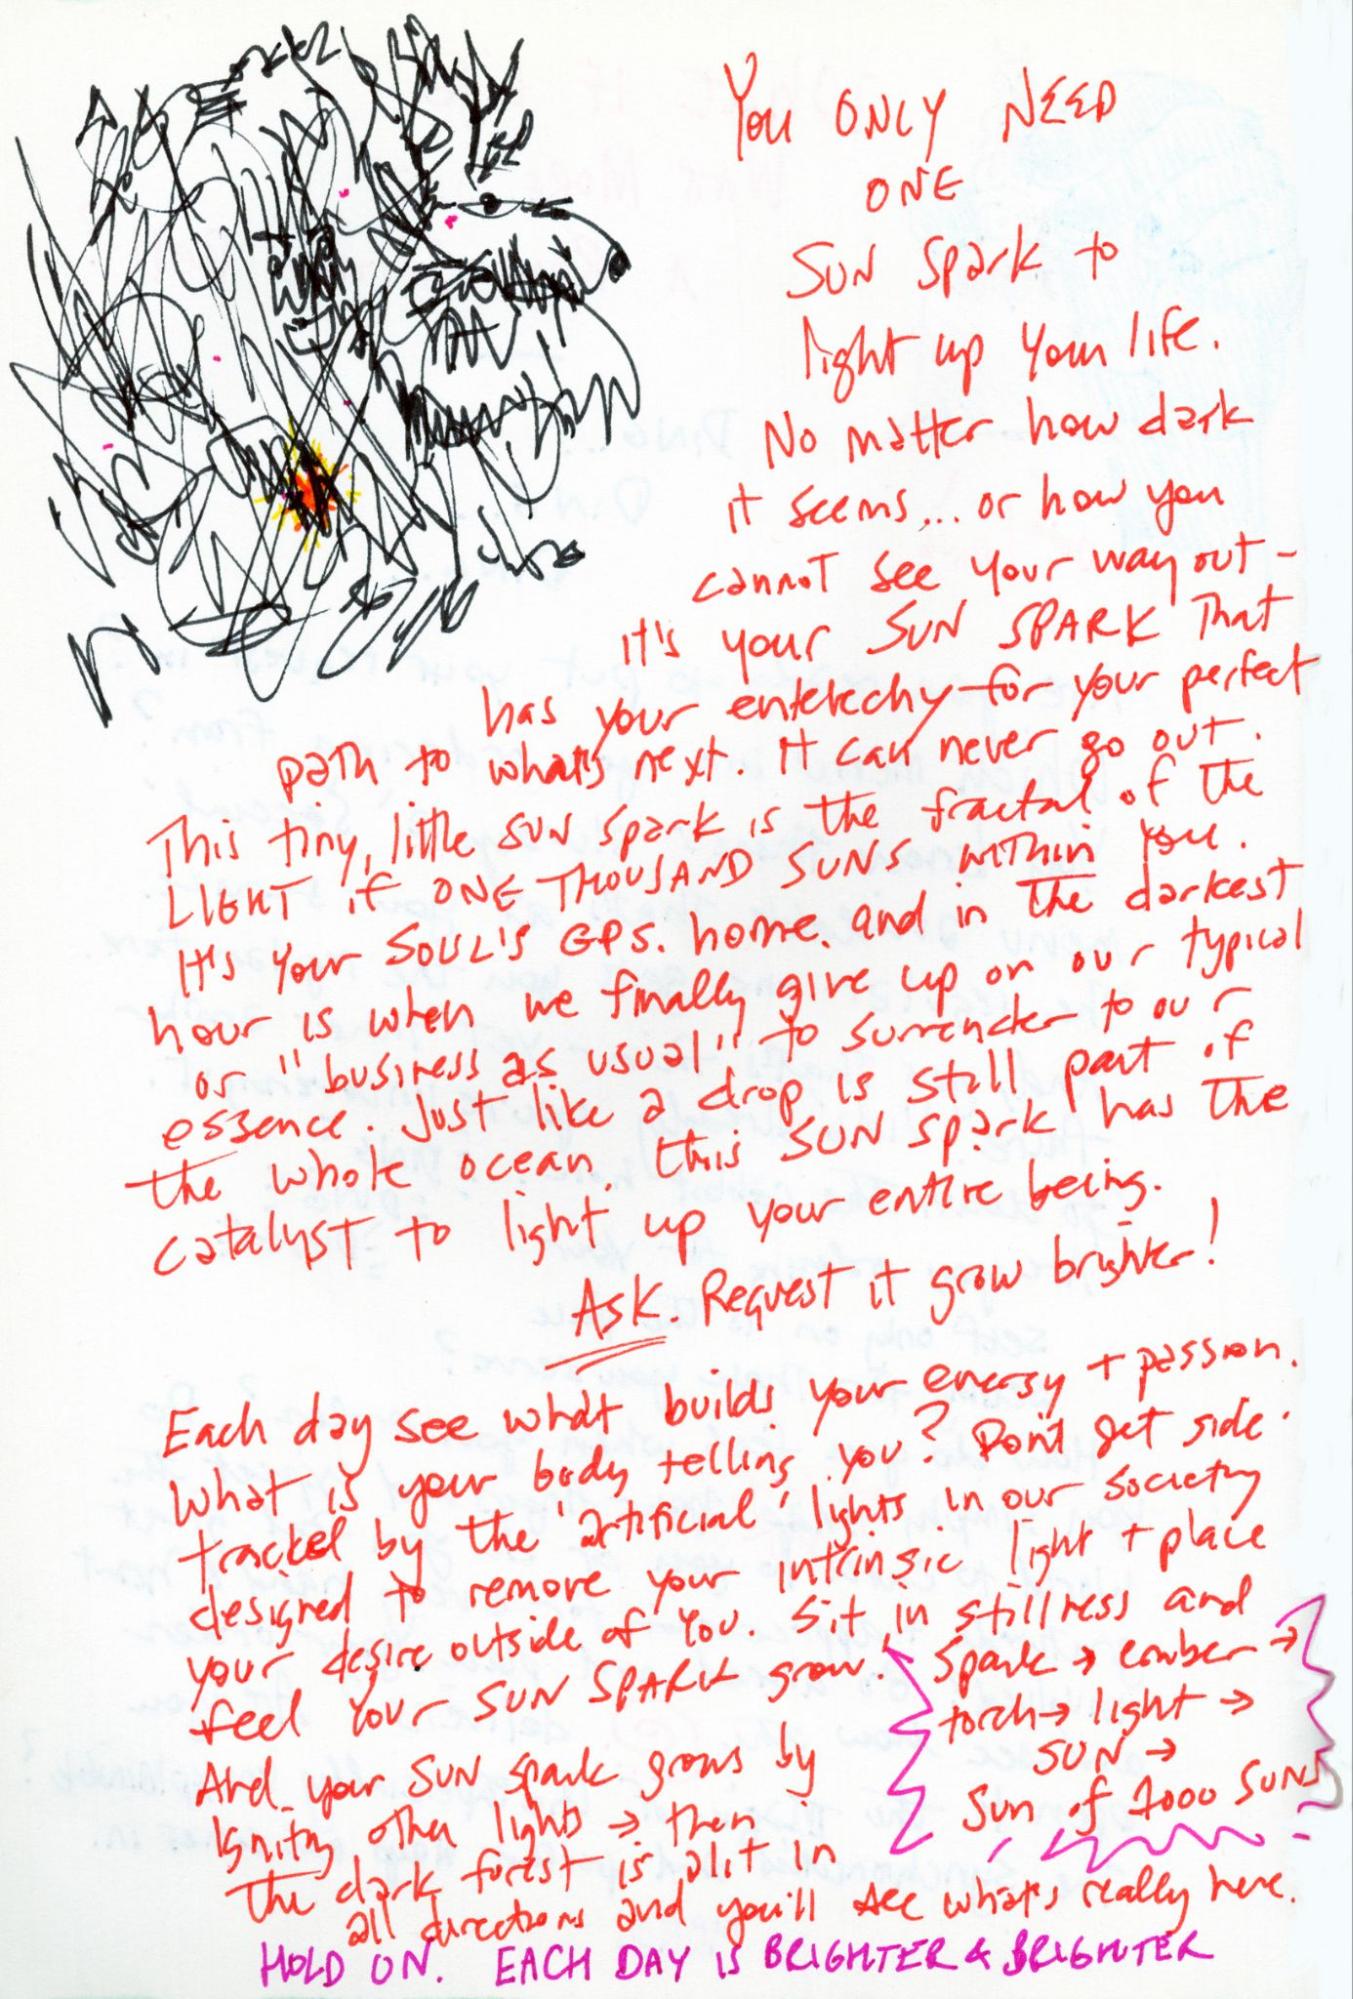 You ONLY NEED
ONE
SUN Spark to
light up your life.
No matter how dark
it seems... or how you
cannot see your way out -
it's your SUN SPARK That
has your entelechy for your perfect
path to what's next. It can never go out.
This tiny, little SUN Spark is the fractal of the
LIGHT of ONE THOUSAND SUNS within you.
It's your SOUL'S GPS. home. and in the darkest
hour is when we finally give up on our typical
or "business as usual" to surrender to our
essence. Just like a drop is still part of
the whole ocean, this SUN Spark has the
catalyst to light up your entire being.
ASK. Request it grow brighter!
Each day see what builds your energy + passion.
What is your body telling you? Don't get side
tracked by the "artificial" lights in our society
designed to remove your intrinsic light + place
your desire outside of you. Sit in stillness and
feel your SUN SPARK grow. Spark → ember →
torch → light →
SUN →
Sun of 1000 SUNS
And your SUN spark grows by
igniting other lights → then
the dark forest is alit in
all directions and you'll see what's really here.
HOLD ON. EACH DAY IS BRIGHTER & BRIGHTER